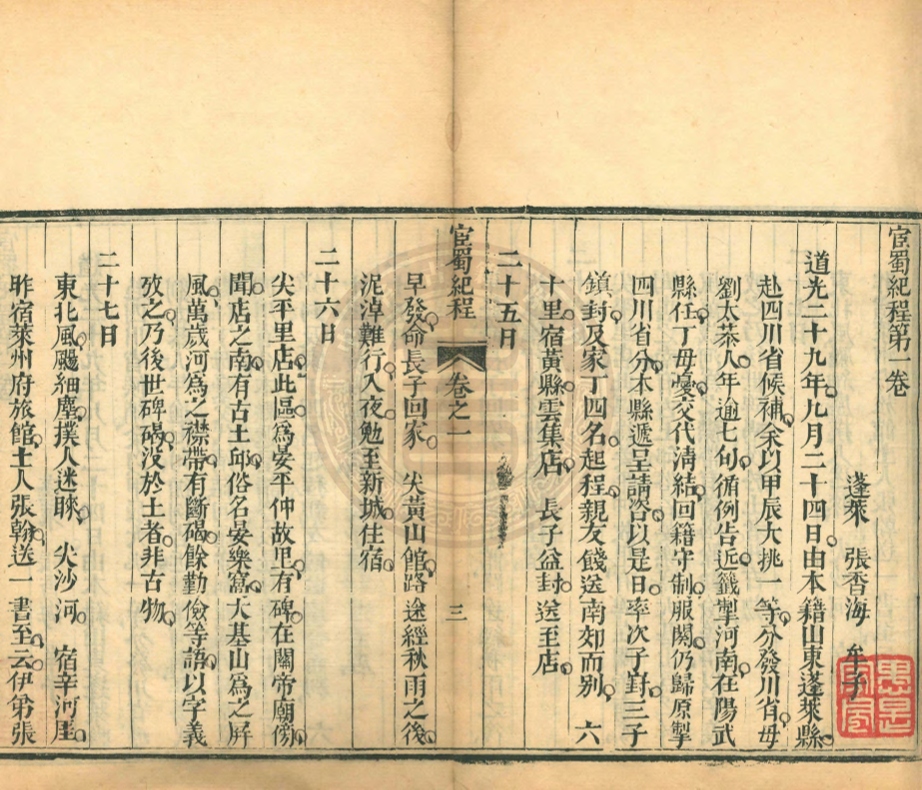 宦蜀紀程第一卷
蓬萊 張香海 牟子
道光二十九年九月二十四日由本籍山東蓬萊縣
赴四川省候補余以甲辰大挑一等分發川省母
劉太恭人年逾七旬循例告近籤掣河南在陽武
縣任丁母憂交代清結回籍守制服闋仍歸原掣
四川省分本縣遞呈請咨以是日率次子對三子
鎮封及家丁四名起程親友餞送南郊而别 六
十里宿黃縣雲集店 長子益封送至店
二十五日
宦蜀紀程 卷之一 三
早發命長子回家 尖黃山館路途經秋雨之後
泥淖難行入夜勉至新城住宿
二十六日
尖平里店此區為晏平仲故里有碑在關帝廟傍
聞店之南有古土邱俗名晏樂窩大基山為之屏
風萬歲河為之襟帶有斷碣餘勤儉等語以字義
攷之乃後世碑碣没於土者非古物
二十七日
東北風颺細塵撲人迷睞 尖沙河 宿辛河崖
昨宿萊州府旅館土人張翰送一書至云伊弟張